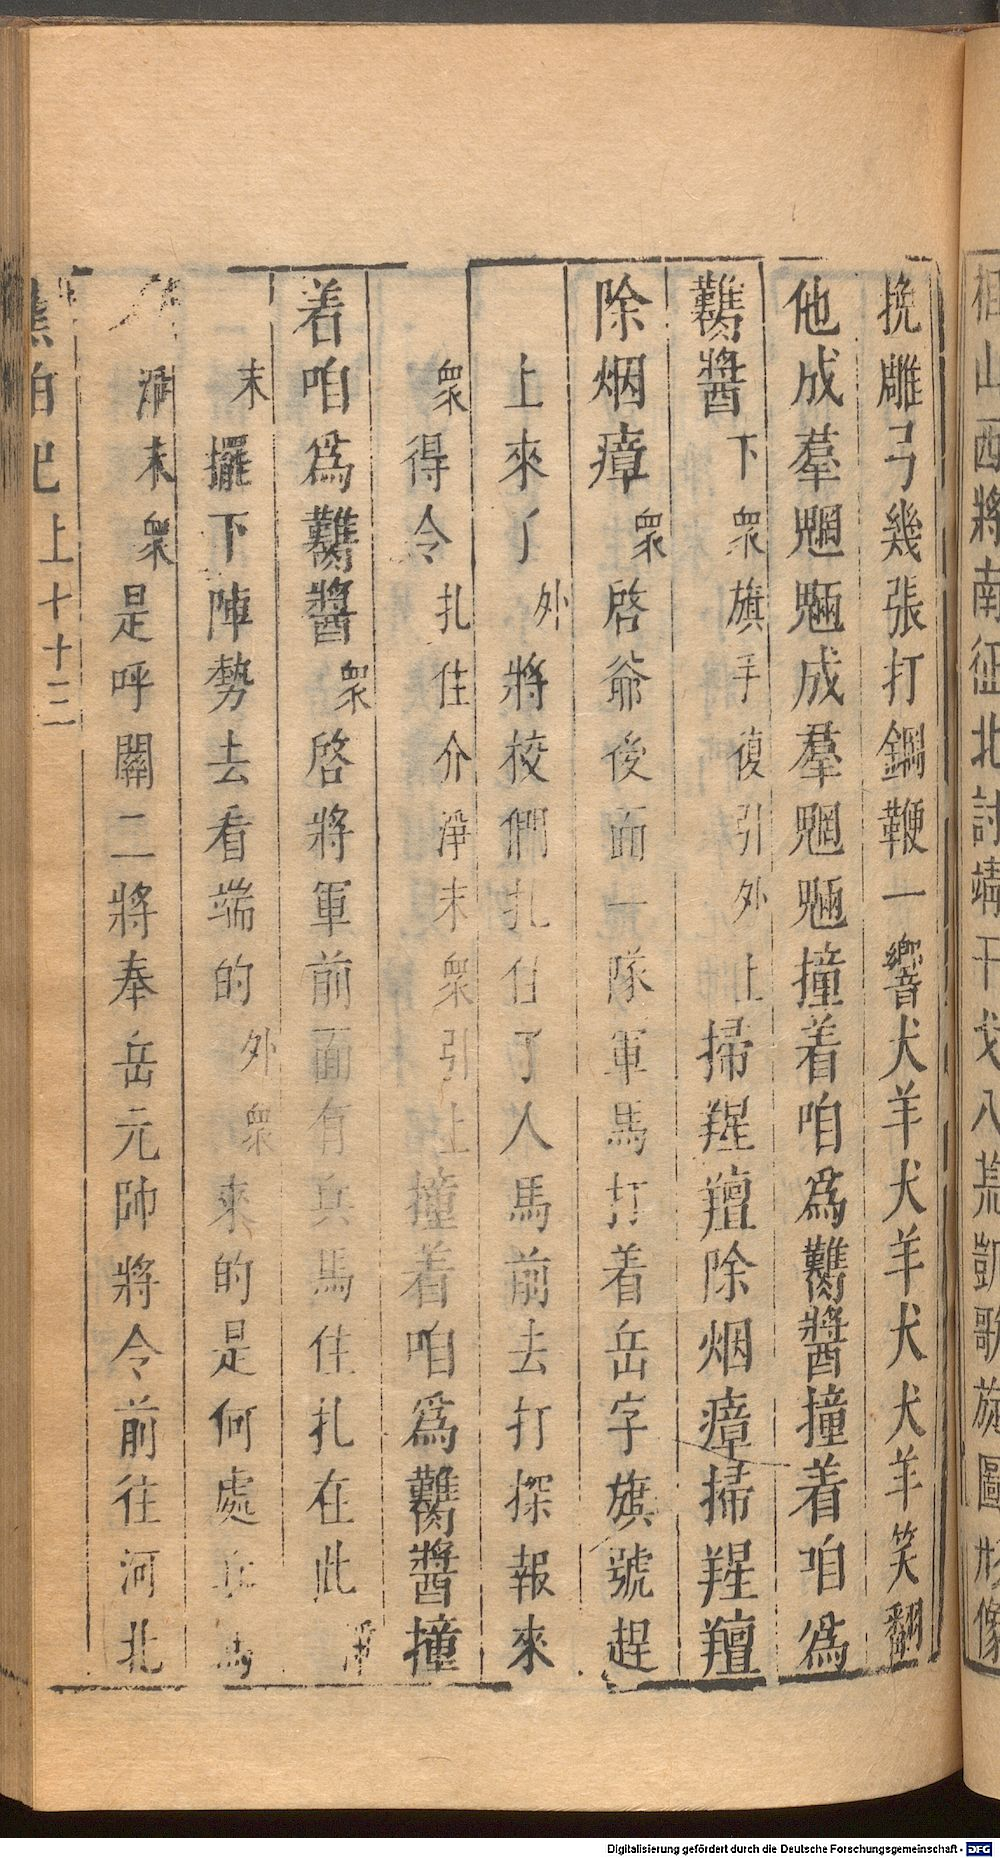 桓山西將南征北討靖干戈八荒凱歌旋圖形像
挽雕弓幾張打鋼鞭一響犬羊犬羊犬犬羊笑翻
他成羣魍魎成羣魍魎撞着咱爲虀醬撞着咱爲
虀醬下衆旗手復引外上掃羥羶除烟瘴掃羥羶
除烟瘴衆啓爺後面一隊軍馬打着岳字旗號趕
上來了外將校們扎住了人馬前去打探報來
衆得令扎住介淨末衆引上撞着咱爲虀醬撞
着咱爲虀醬衆啓將軍前面有兵馬住扎在此淨
末擺下陣勢去看端的外衆來的是何處兵馬
淨末衆是呼關二將奉岳元帥將令前往河北
上十十三
Digitalisierung gefördert durch die Deutsche Forschungsgemeinschaft - DFG